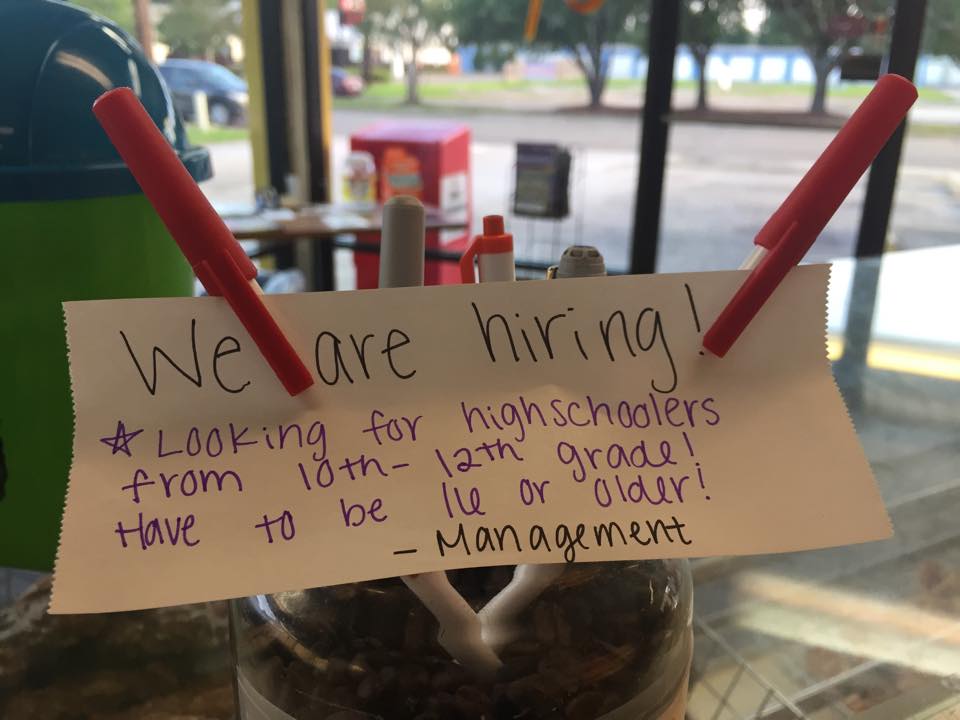 We are hiring!
☆ Looking for highschoolers
from 10th - 12th grade!
Have to be 16 or older!
- Management